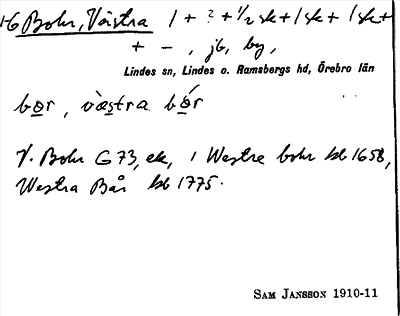 HG Bohr, Västra 1 + ? + 1/2 sk + 1 sk + 1 sk +
+ - , jb, by,
Lindes sn, Lindes o. Ramsbergs hd, Örebro län
bor, västra bór
V. Bohr G 73, ek, 1 Westre bohr kb 1658,
Westra Bår kb 1775.
SAM JANSSON 1910-11